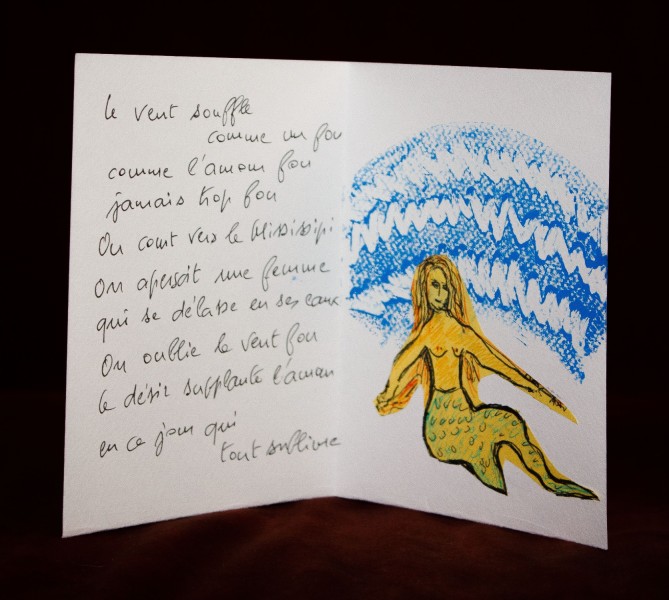 le vent souffle
comme un fou
comme l'amour fou
jamais trop fou
On court vers le Mississipi
On apersoit une femme
qui se délasse en ses eaux
On oublie le vent fou
le désir supplante l'amour
en ce jour qui
tout sublime